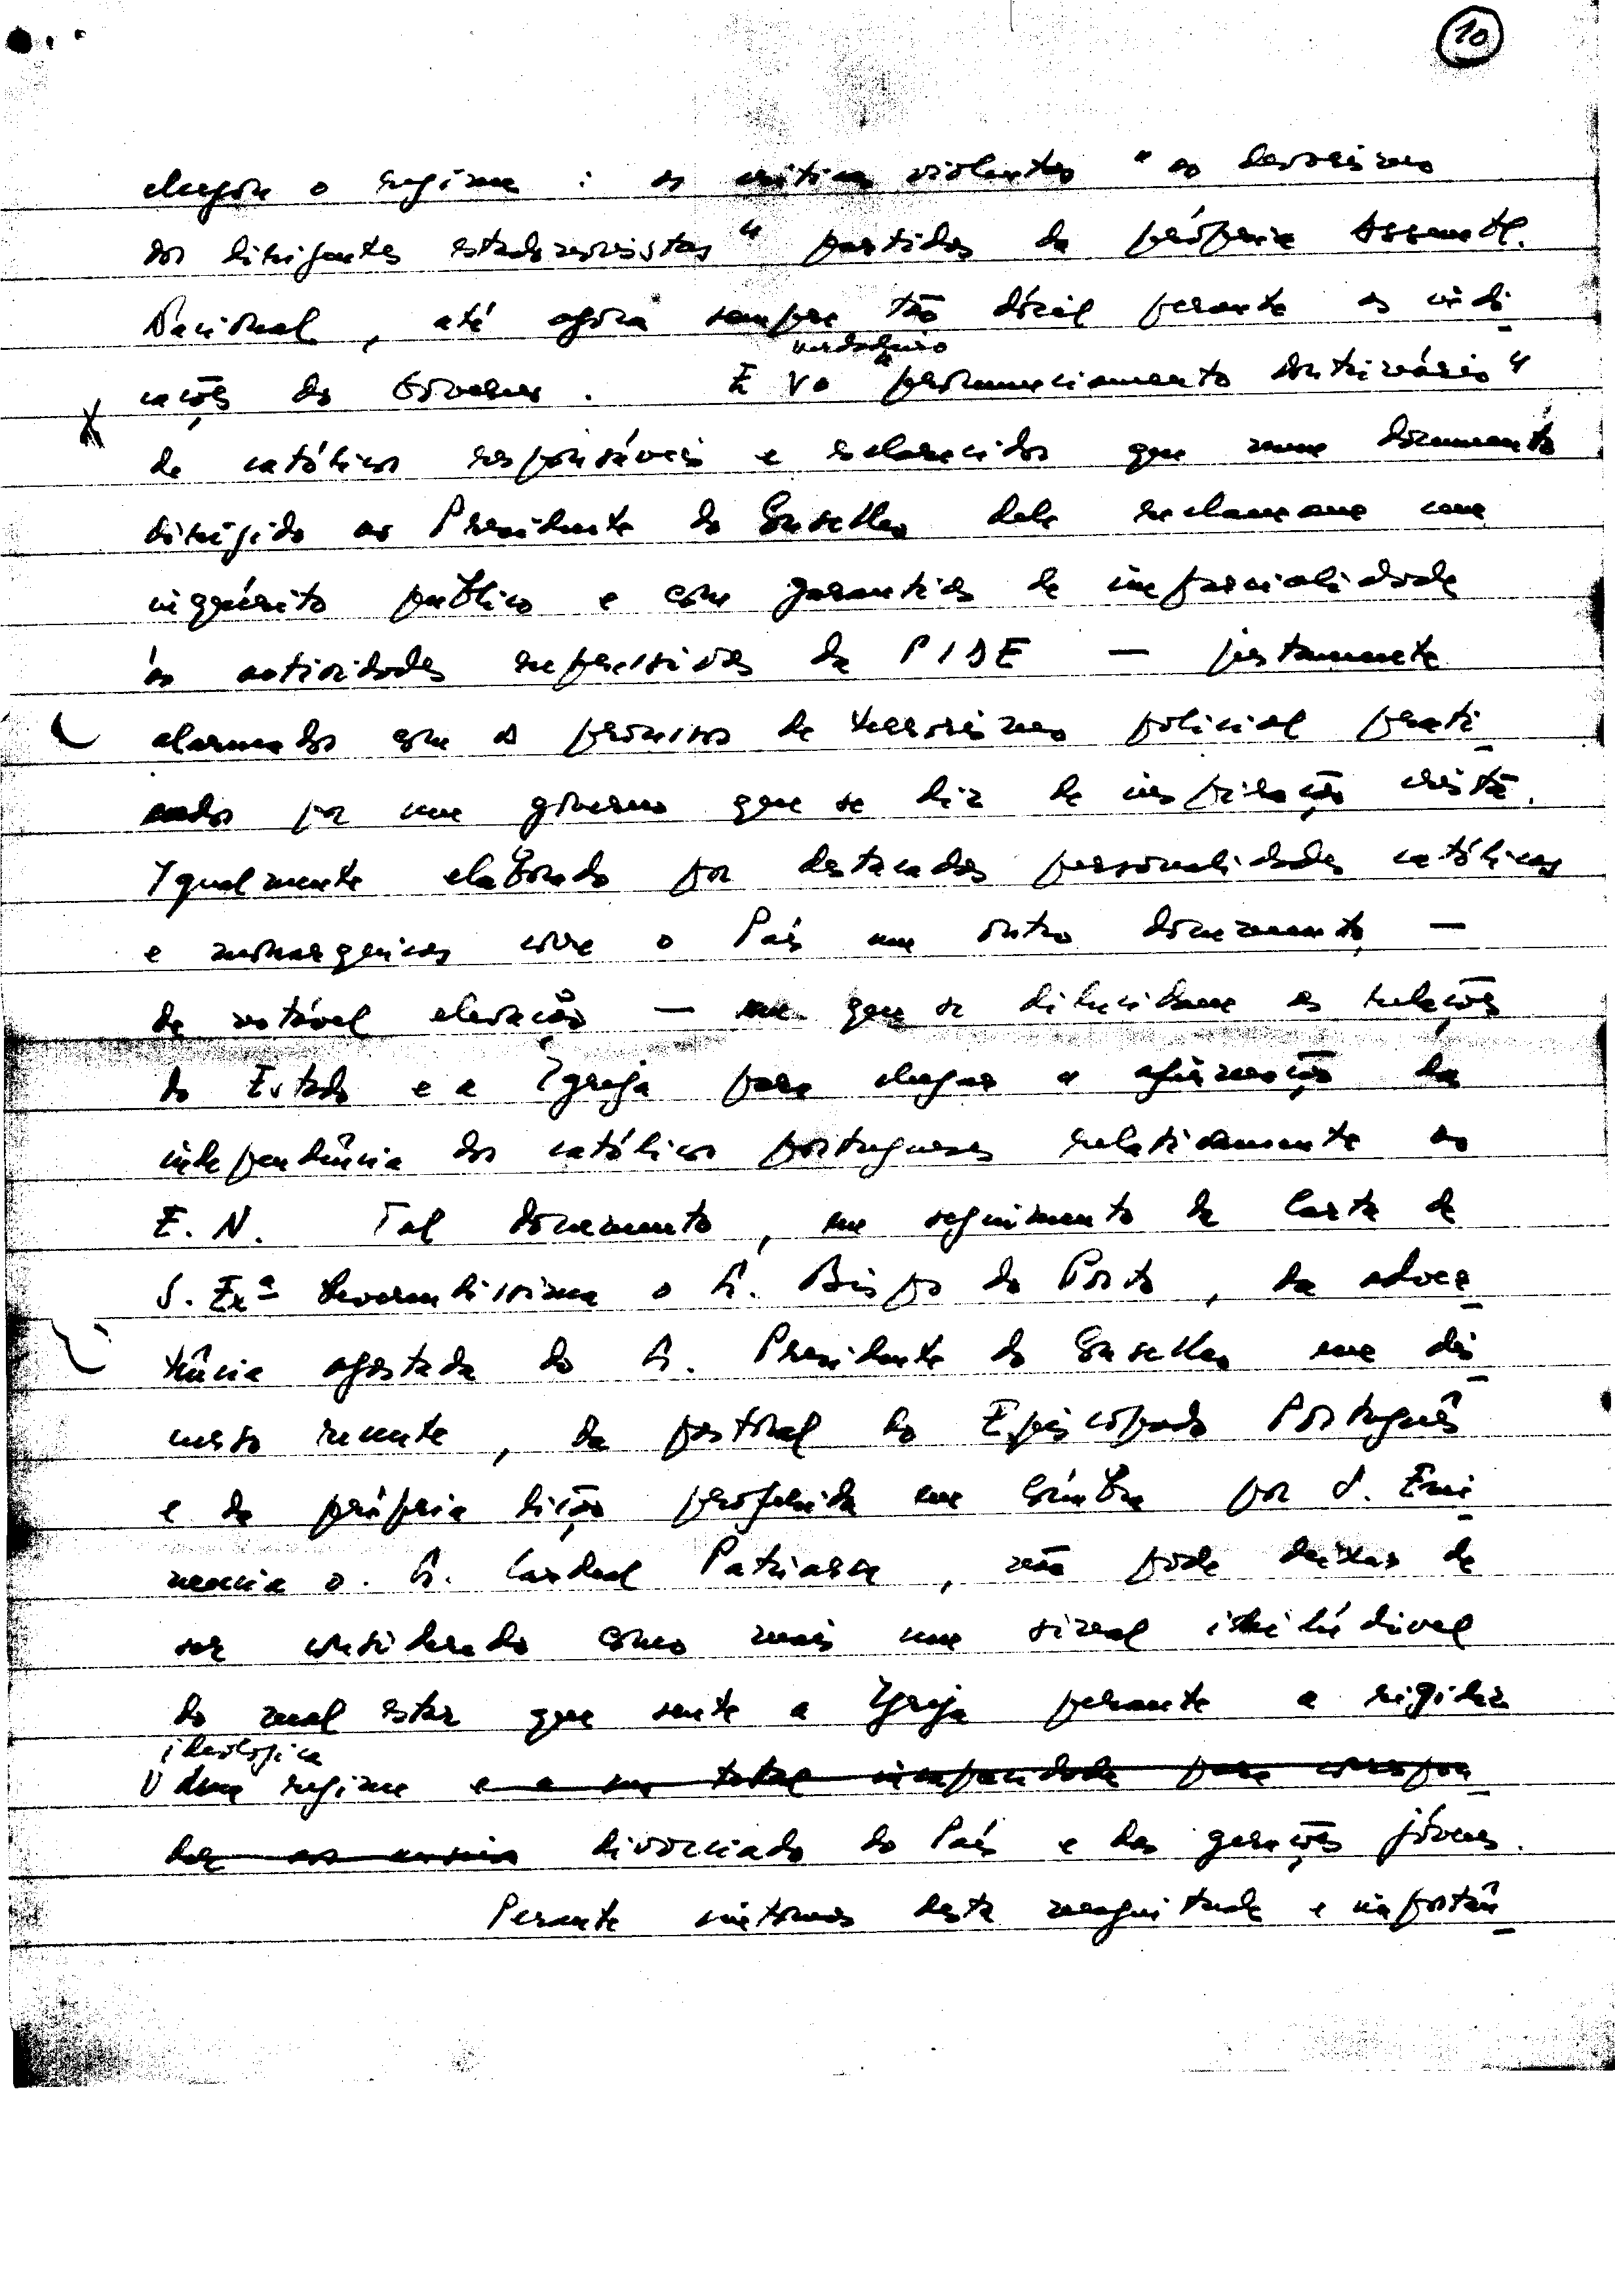 10
chegou o regime : as críticas violentas " ao
dos dirigentes estadonovistas " partidas da própria Assembl.
Nacional, até agora sempre tão dócil perante as indi-
verdadeiro
cações do Govêrno. E o "pronunciamento doutrinário"
de católicos responsáveis e esclarecidos que num documento
dirigido ao Presidente do Conselho dele reclamam um
inquérito público e com garantias de imparcialidade
às actividades repressivas da PIDE — justamente
alarmados com os processos de terrorismo policial prati-
cados por um govêrno que se diz de inspiração cristã.
Igualmente elaborado por destacadas personalidades católicas
e monarquicas corre o País um outro documento —
de notável elevação — em que se dilucidam as relações
do Estado e a Igreja para chegar a afirmação da
independência dos católicos portugueses relativamente ao
E. N. Tal documento, em seguimento da Carta de
S. Exª Reverendíssima o Sr. Bispo do Porto, da adver-
tência agastada do Sr. Presidente do Conselho em dis-
curso recente, da pastoral do Episcopado Português
e da própria lição proferida em Coimbra por S. Emi-
nencia o Sr. Cardeal Patriarca, não pode deixar de
ser considerado como mais um sinal iniludível
do mal estar que sente a Igreja perante a rigidez
ideologica
dum regime e a sua total incapacidade para correspon-
der aos anseios divorciado do País e das gerações jóvens.
Perante sintomas desta magnitude e importân-